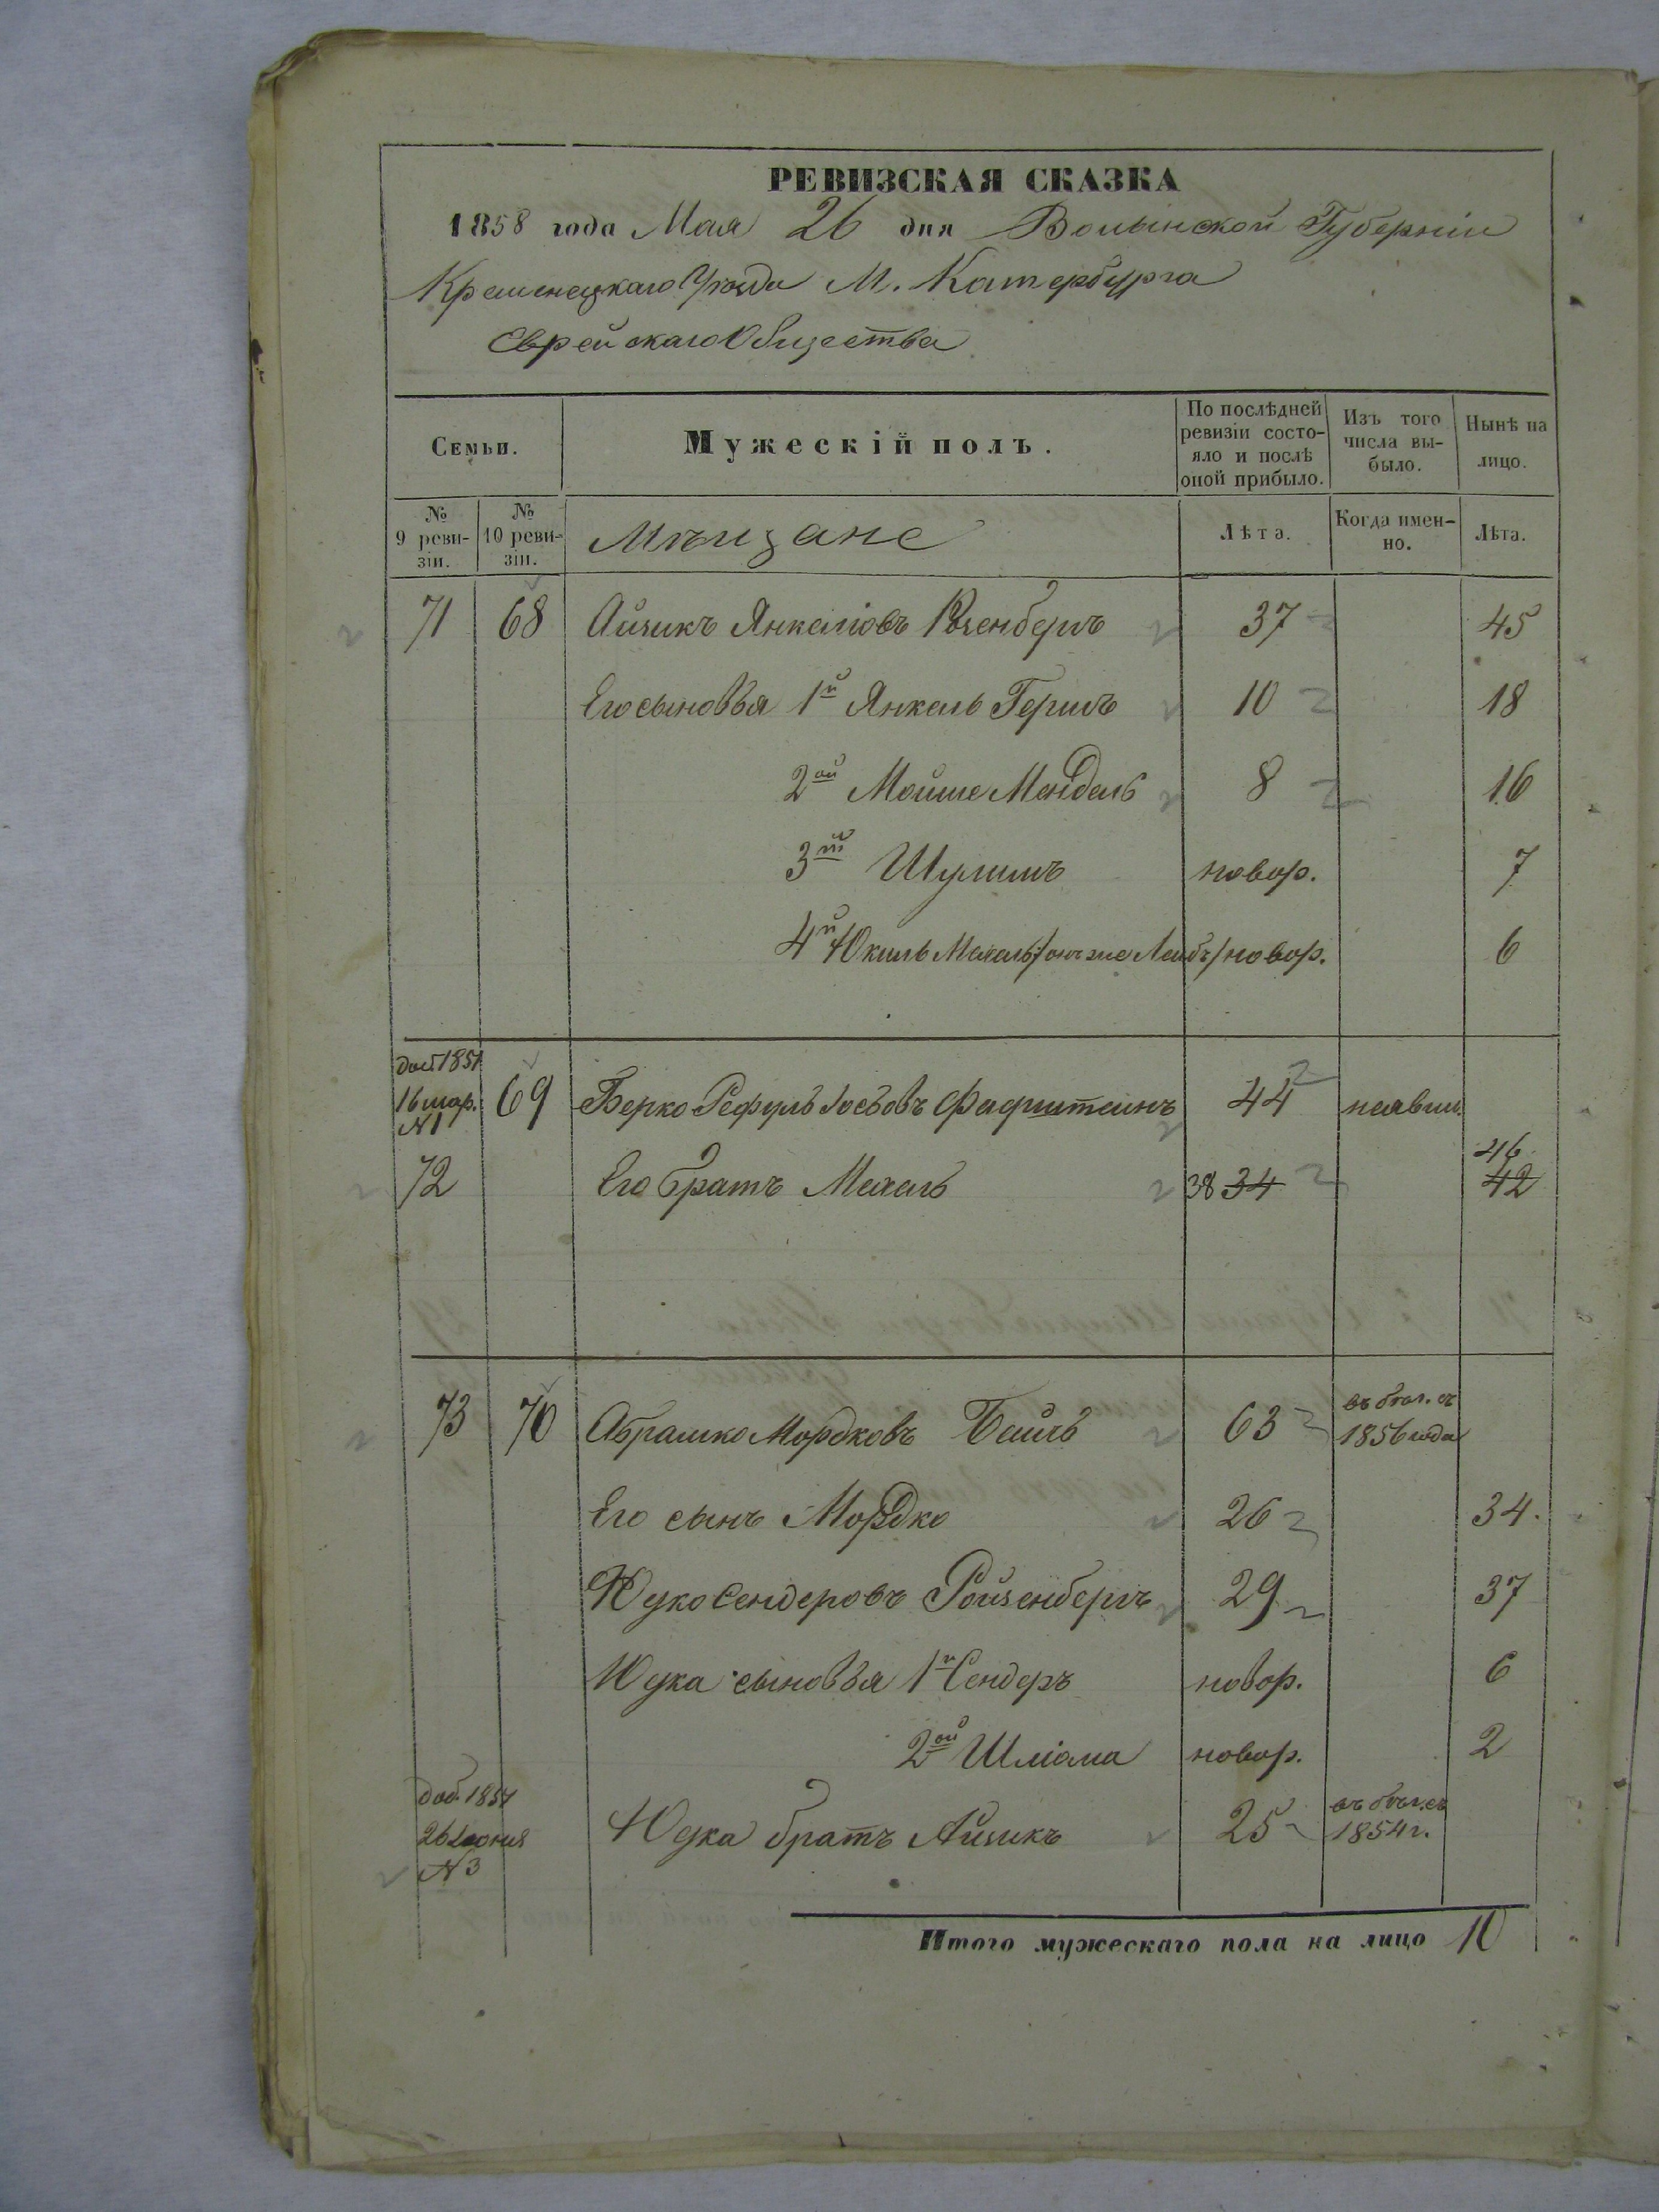 РЕВИЗСКАЯ СКАЗКА
1858 года Мая 26 дня Волынской Губерніи
Кременецкаго Уѣзда М. Катербурга
Еврейскаго Общества
Семьи. Мужескій полъ. По послѣдней ревизіи состояло и послѣ оной прибыло. Изъ того числа выбыло. Нынѣ на лицо.
№ 9 ревизіи. № 10 ревизіи. Мѣщане Лѣта. Когда именно. Лѣта.
71 68 Айзикъ Янкелiовъ Розенбергъ 37 45
Его сыновья 1й Янкель Гершъ 10 18
2ой Мойше Мендель 8 16
3ій Шулимъ новор. 7
4й Юкиль Мехель /онъ же Лейбъ/ новор. 6
доб. 1851
16 мар. 69 Берко Рефуль Іосьовъ 44 неявил.
№1
46
72 Его братъ Мехель 38 34 42
въ бѣг. съ
73 70 Абрашко Мордковъ 63 1856 года
Его сынъ Мордко 26 34.
Юдко Сендеровъ Ройзенбергъ 29 37
Юдка сыновья 1й Сендеръ новор. 6
2ой Шліома новор. 2
доб. 1851 въ бѣг. съ
26 Іюня Юдка братъ Айзикъ 25 1854 г.
№3
Итого мужескаго пола на лицо 10